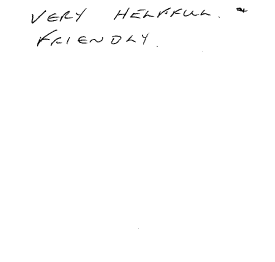 VERY HELPFUL. &
FRIENDLY.